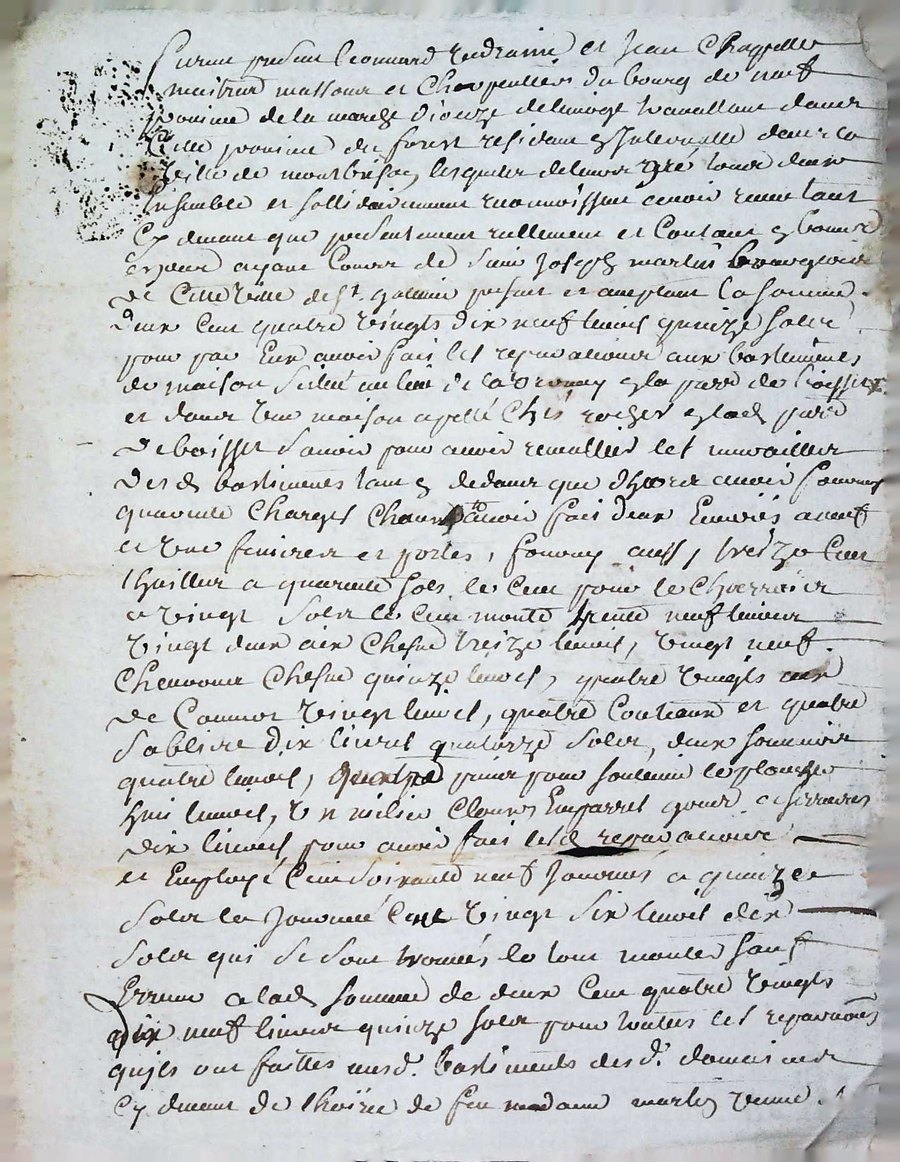 furent présent Leonard et Jean Chapelle
maitres massons et Charpentiers du bourg de neuf
de la marche dioceze de limoge travaillant dans
Cette province du forest residant dans la
Ville de montbrison lesquels de leur gré tous deux
Ensemble et sollidairement reconnoissent avoir receu tant
Cy devant que presentement reellement et Contant bonnes
espece ayant Cours de sieur Joseph martin bourgeois
de Cette Ville de st. galmier present et aceptant la somme
deux Cent quatre Vingts dix neuf livres quinze solds
pour par Eux avoir fait les reparations aux bastiments
de maison scitué au lieu de la parr de boisset
et dans Une maison apellé Chés rocher parr
de boisset savoir pour avoir les murailles
desd bastiments tant dedans que dhors avoir fourny
quarante Charges Chaux avoir fait deux a neuf
et Une fenestre et portes, fourny aussy treize Cent
thuilles a quarante sols le Cent pour le Charroir
a Vingt solds le Cent monte trente neuf livres
Vingt deux aix Chesne treize livres, Vingt neuf
Chevrons Chesne quinze livres, quatre Vingts
de Vingt livres, quatre Couteaux et quatre
sabliere dix livres quatorze solds, deux sommier
quatre livres, quatre pour soutenir le plancher
huit livres, Un milier Cloux gond et serrures
dix livres pour avoir fait lesd reparations
et Employé Cent soixante neuf Journées a quinze
solds la Journée Cent Vingt six livres dix
solds qui se sont trouvés le tout monter sauf
Erreur a lad somme de deux Cent quatre Vingts
dix neuf livres quinze solds pour toutes les reparations
quils ont faittes ausd. bastiments desd. domaines
Cy devant de l'hoirie de feu madame martin